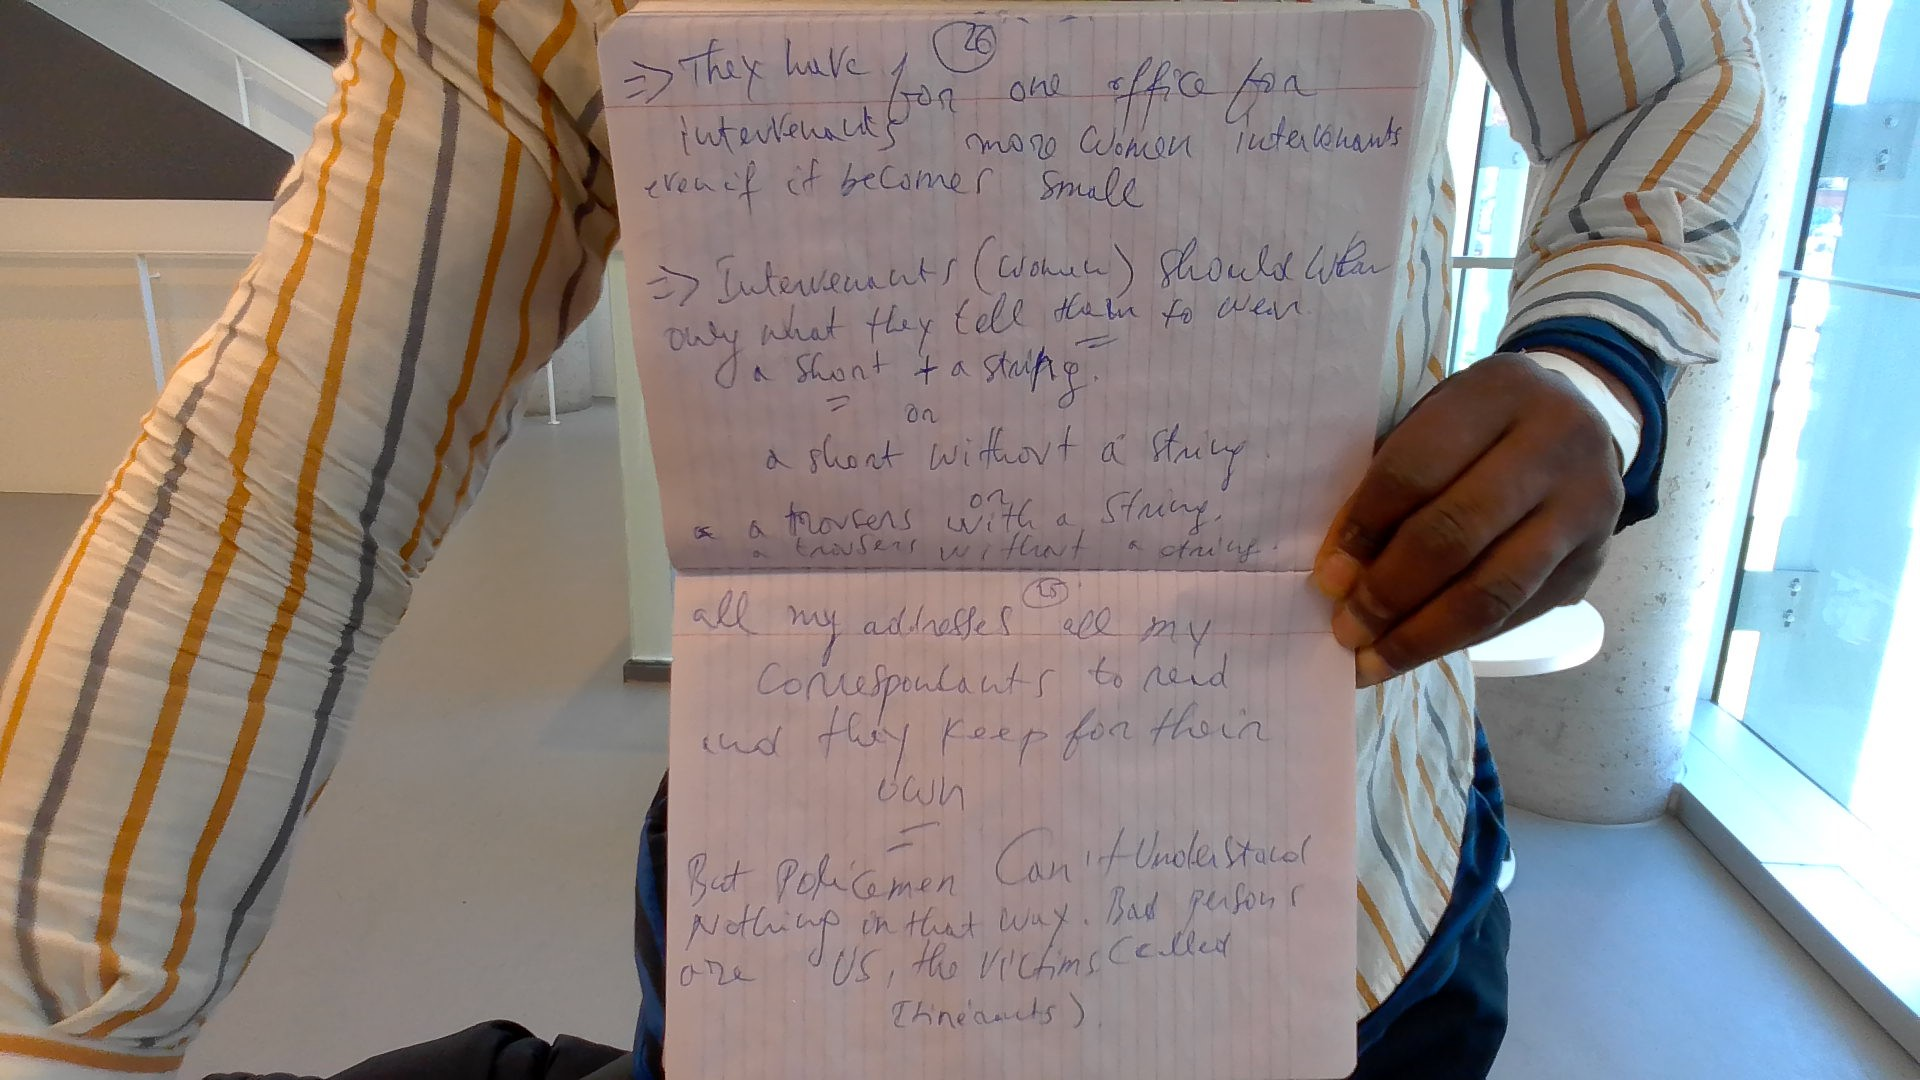 26
=> They have for one office for
intervenants more women intervenants
even if it becomes small
=> Intervenants (women) should wear
only what they tell them to wear.
a short + a string.
or
a short without a string.
or
a trousers with a string.
a trousers without a string.
all my addresses all my
correspondants to read
and they keep for their
own
But Policemen Can't Understand
Nothing in that way. Bad persons
are US, the victims called
Itinérants).